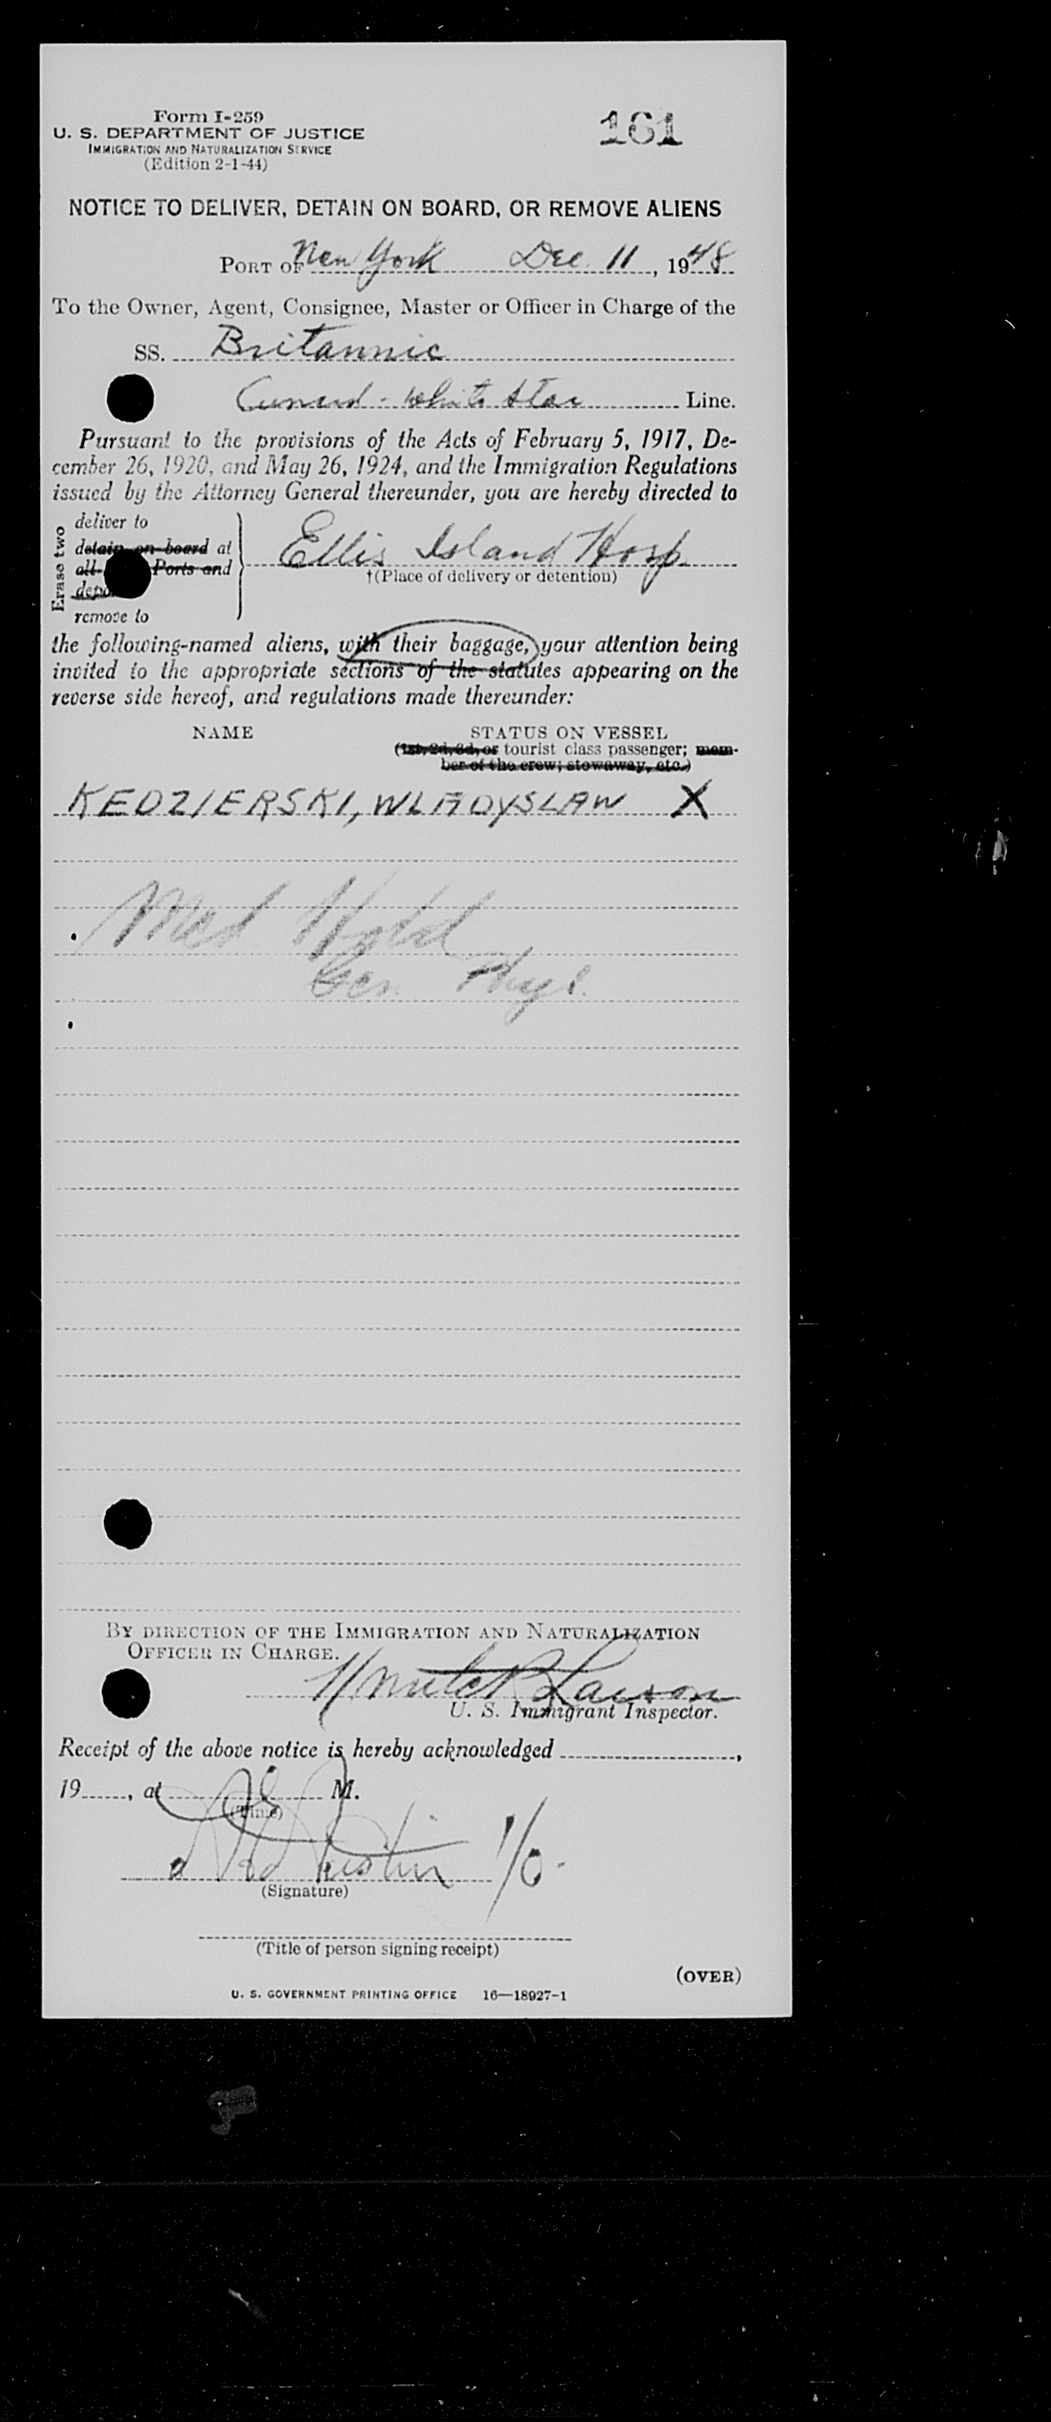 Form I-259
161
U. S. DEPARTMENT OF JUSTICE
IMMIGRATION AND NATURALIZATION SERVICE
(Edition 2-1-44)
NOTICE TO DELIVER, DETAIN ON BOARD, OR REMOVE ALIENS
PORT OF New York Dec 11, 1948
To the Owner, Agent, Consignee, Master or Officer in Charge of the
SS. Britannic
Cunard - White Star Line.
Pursuant to the provisions of the Acts of February 5, 1917, De-
cember 26, 1920, and May 26, 1924, and the Immigration Regulations
issued by the Attorney General thereunder, you are hereby directed to
Erase two
deliver to
detain on board at
all Ports and
remove to
Ellis Island Hosp.
†(Place of delivery or detention)
the following-named aliens, with their baggage, your attention being
invited to the appropriate sections of the statutes appearing on the
reverse side hereof, and regulations made thereunder:
NAME STATUS ON VESSEL
(1st, 2d, 3d, or tourist class passenger; mem-
ber of the crew; stowaway, etc.)
KEDZIERSKI, WLADYSLAW X
Med Hold
Gen. Phys.
BY DIRECTION OF THE IMMIGRATION AND NATURALIZATION
OFFICER IN CHARGE.
Larson
U. S. Immigrant Inspector.
Receipt of the above notice is hereby acknowledged ,
19 , at M.
(Time)
(Signature)
(Title of person signing receipt)
(OVER)
U. S. GOVERNMENT PRINTING OFFICE 16—18927-1